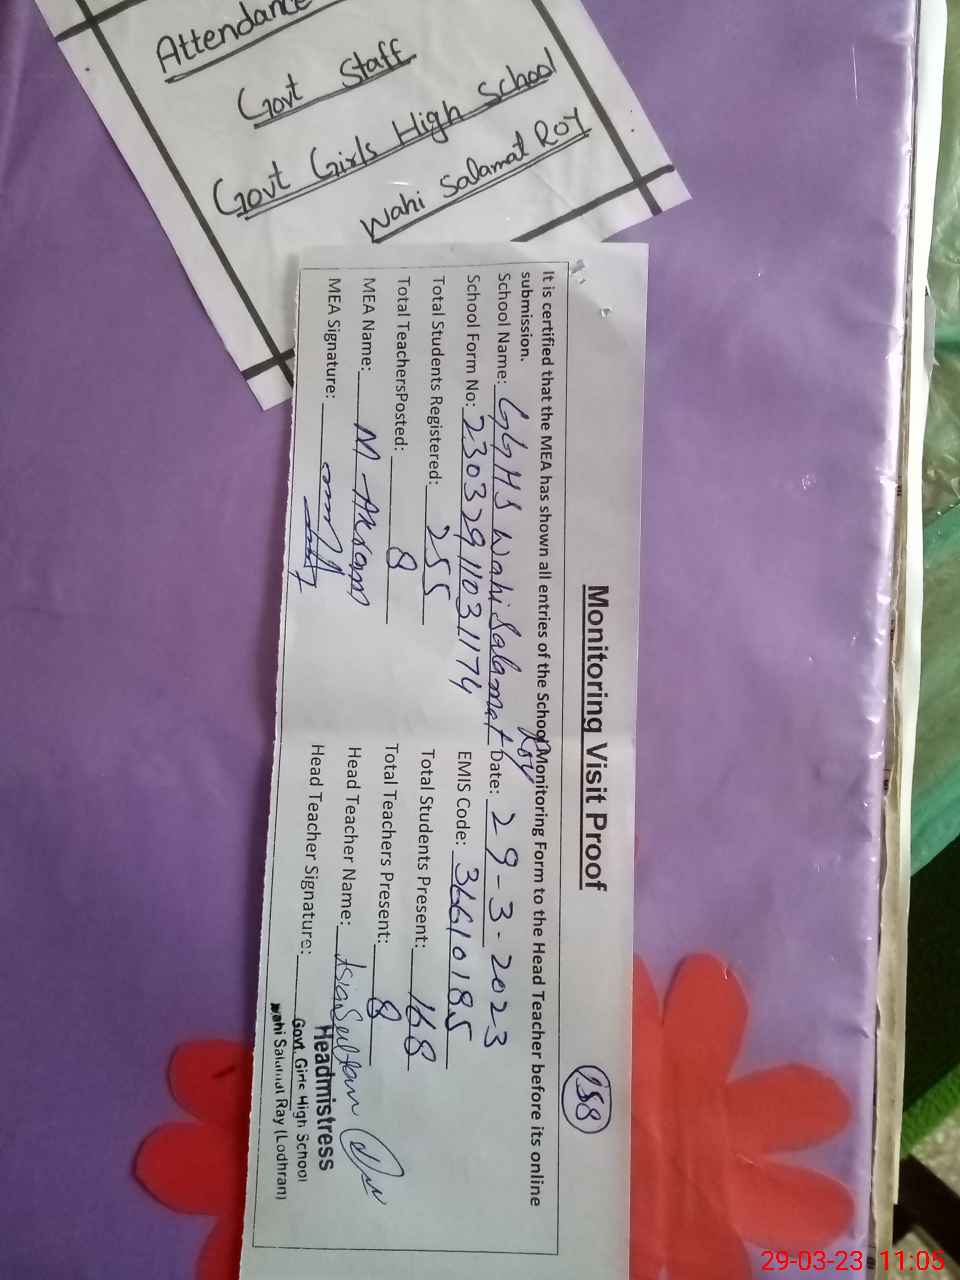 Attendance
Govt Staff
Govt Girls High School
Wahi Salamat ROY
Monitoring Visit Proof
158
It is certified that the MEA has shown all entries of the School Monitoring Form to the Head Teacher before its online
submission.
School Name: GGHS Wahi Salamat Roy Date: 29-3-2023
School Form No: 23032911031174 EMIS Code: 36610185
Total Students Registered: 255 Total Students Present: 168
Total TeachersPosted: 8 Total Teachers Present: 8
MEA Name: M-Akram Head Teacher Name: Asia Sultan
MEA Signature: Head Teacher Signature:
Headmistress
Govt. Girls High School
Wahi Salamat Ray (Lodhran)
29-03-23 11:05